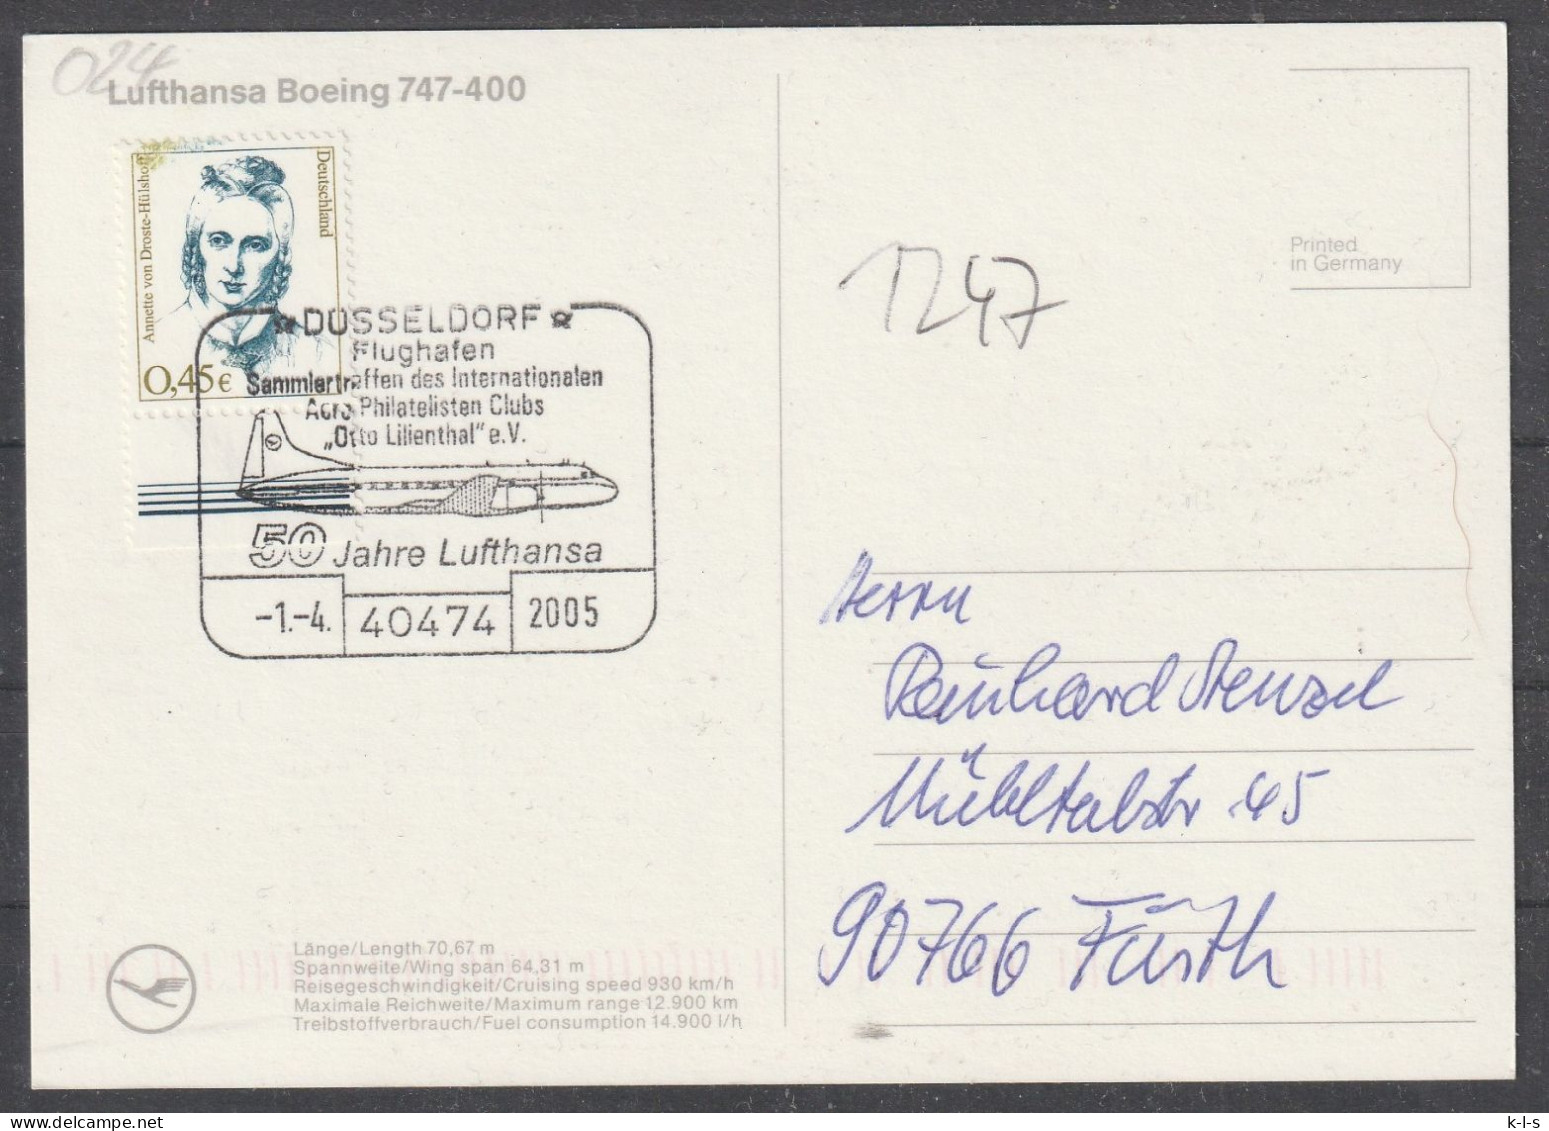 024
Lufthansa Boeing 747-400
Annette von Droste-Hülshoff
Deutschland
0,45€
DÜSSELDORF
Flughafen
Sammlertreffen des Internationalen
Aero Philatelisten Clubs
„Otto Lilienthal" e.V.
50 Jahre Lufthansa
-1.-4. 40474 2005
Printed
in Germany
1247
Herrn
Reinhard Stenzel
Mühltalstr. 45
90766 Fürth
Länge/Length 70,67 m
Spannweite/Wing span 64,31 m
Reisegeschwindigkeit/Cruising speed 930 km/h
Maximale Reichweite/Maximum range 12.900 km
Treibstoffverbrauch/Fuel consumption 14.900 l/h
k-l-s